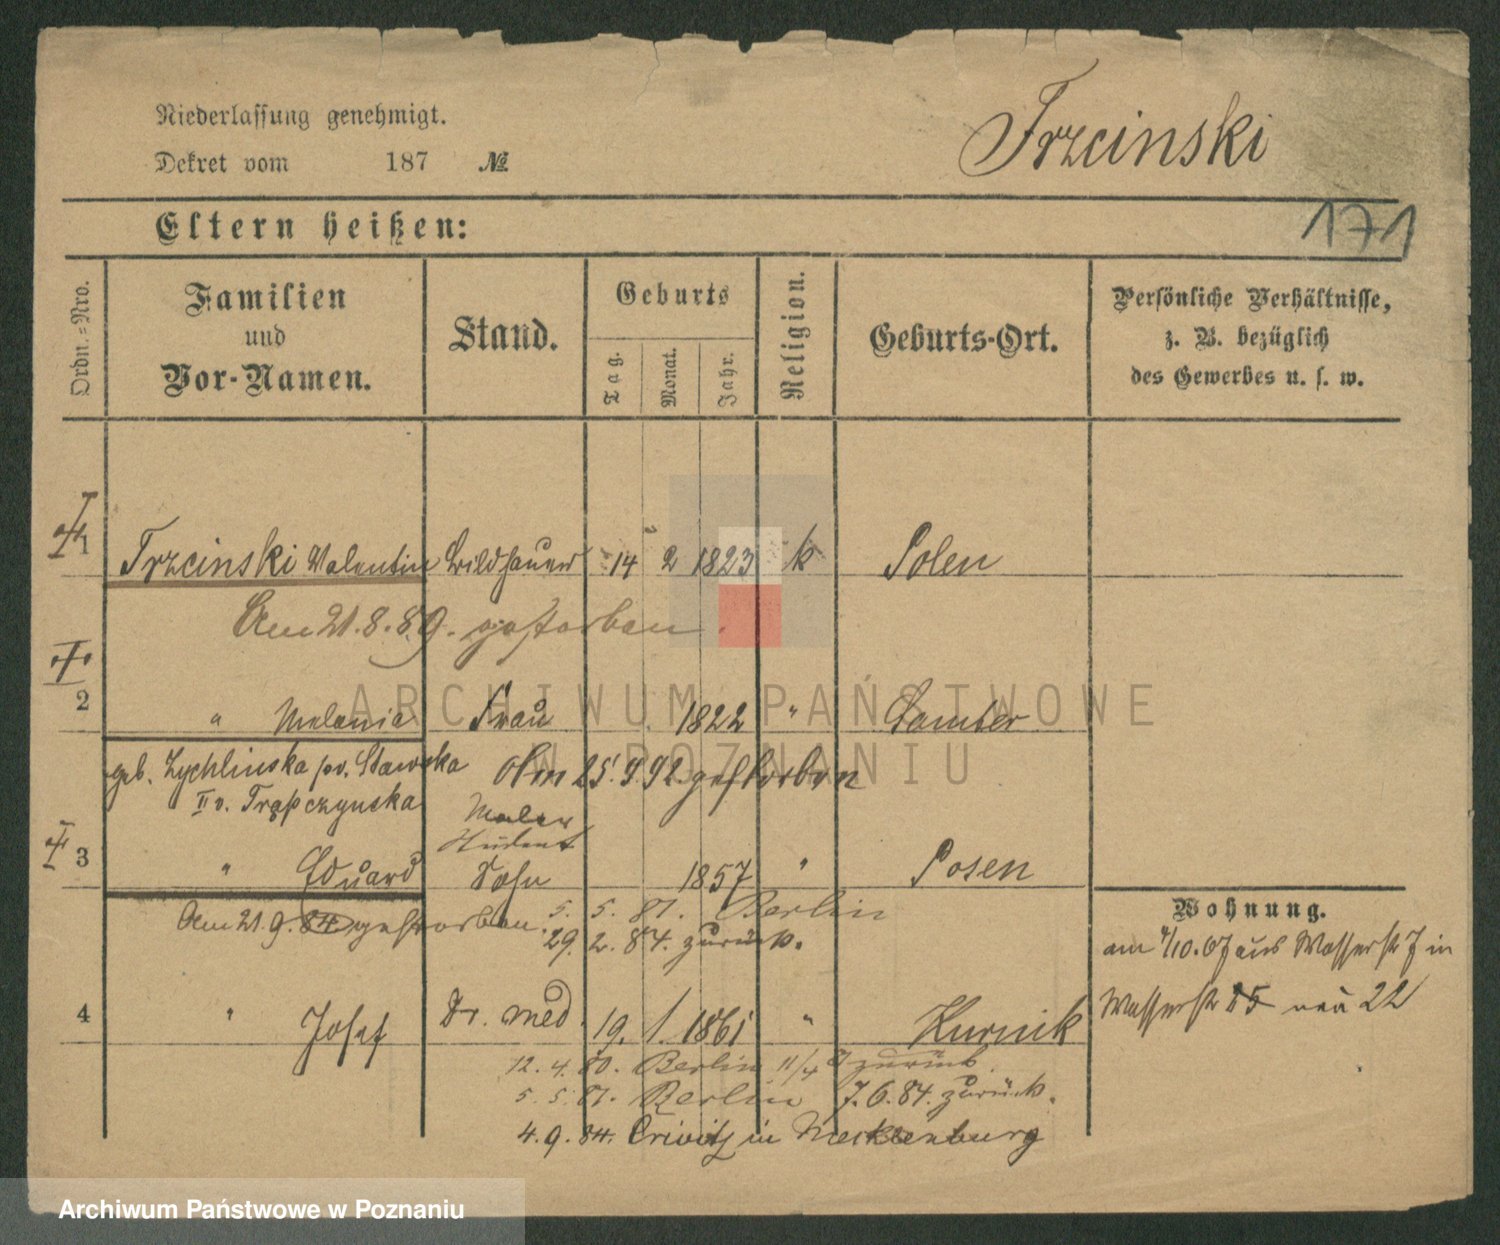 Niederlassung genehmigt.
Dekret vom 187 №
Trzcinski
171
Eltern heißen:
Ordn.-Nro.
Familien und Vor-Namen.
Stand.
Geburts
Tag.
Monat.
Jahr.
Religion.
Geburts-Ort.
Persönliche Verhältnisse,
z. B. bezüglich
des Gewerbes u. s. w.
1 Trzcinski Valentin Bildhauer 14 2 1823 k Polen
Am 21.8.89. gestorben.
2 " Melania Frau 1822 " Samter
geb. Zychlinska pv. Stawska
II v. Trąpczynska
Am 25.9.92 gestorben
Maler
Student
3 " Eduard Sohn 1857 " Posen
Am 21.9.84 gestorben.
5. 5. 81. Berlin
29. 2. 84. zurück.
Wohnung.
am 4/10.67 aus Wasserstr 7 in
Wasserstr 25 neu 22
4 " Josef Dr. med. 19. 1. 1861 " Kurnik
12. 4. 80. Berlin 11/4 zurück.
5. 5. 81. Berlin 7.6.84. zurück.
4.9.84. Crivitz in Mecklenburg
ARCHIWUM PAŃSTWOWE
W POZNANIU
Archiwum Państwowe w Poznaniu